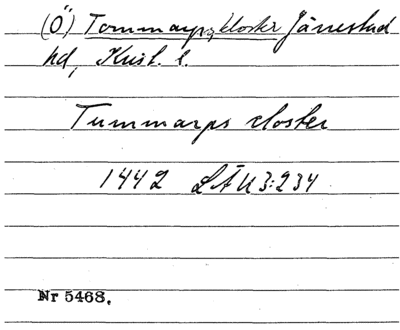 (Ö) Tommarps, kloster Järrestad
hd, Krist. l.
Tummarps closter
1442 LÄU 3:234
Nr 5468.